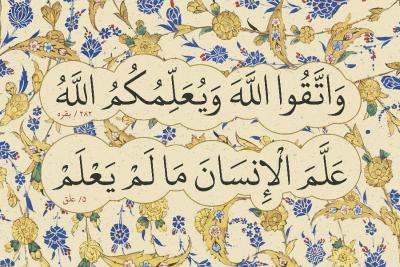 وَاتَّقُوا اللَّهَ وَيُعَلِّمُكُمُ اللَّهُ
۲۸۲ / بقره
عَلَّمَ الْإِنسَانَ مَا لَمْ يَعْلَمْ
۵/ علق